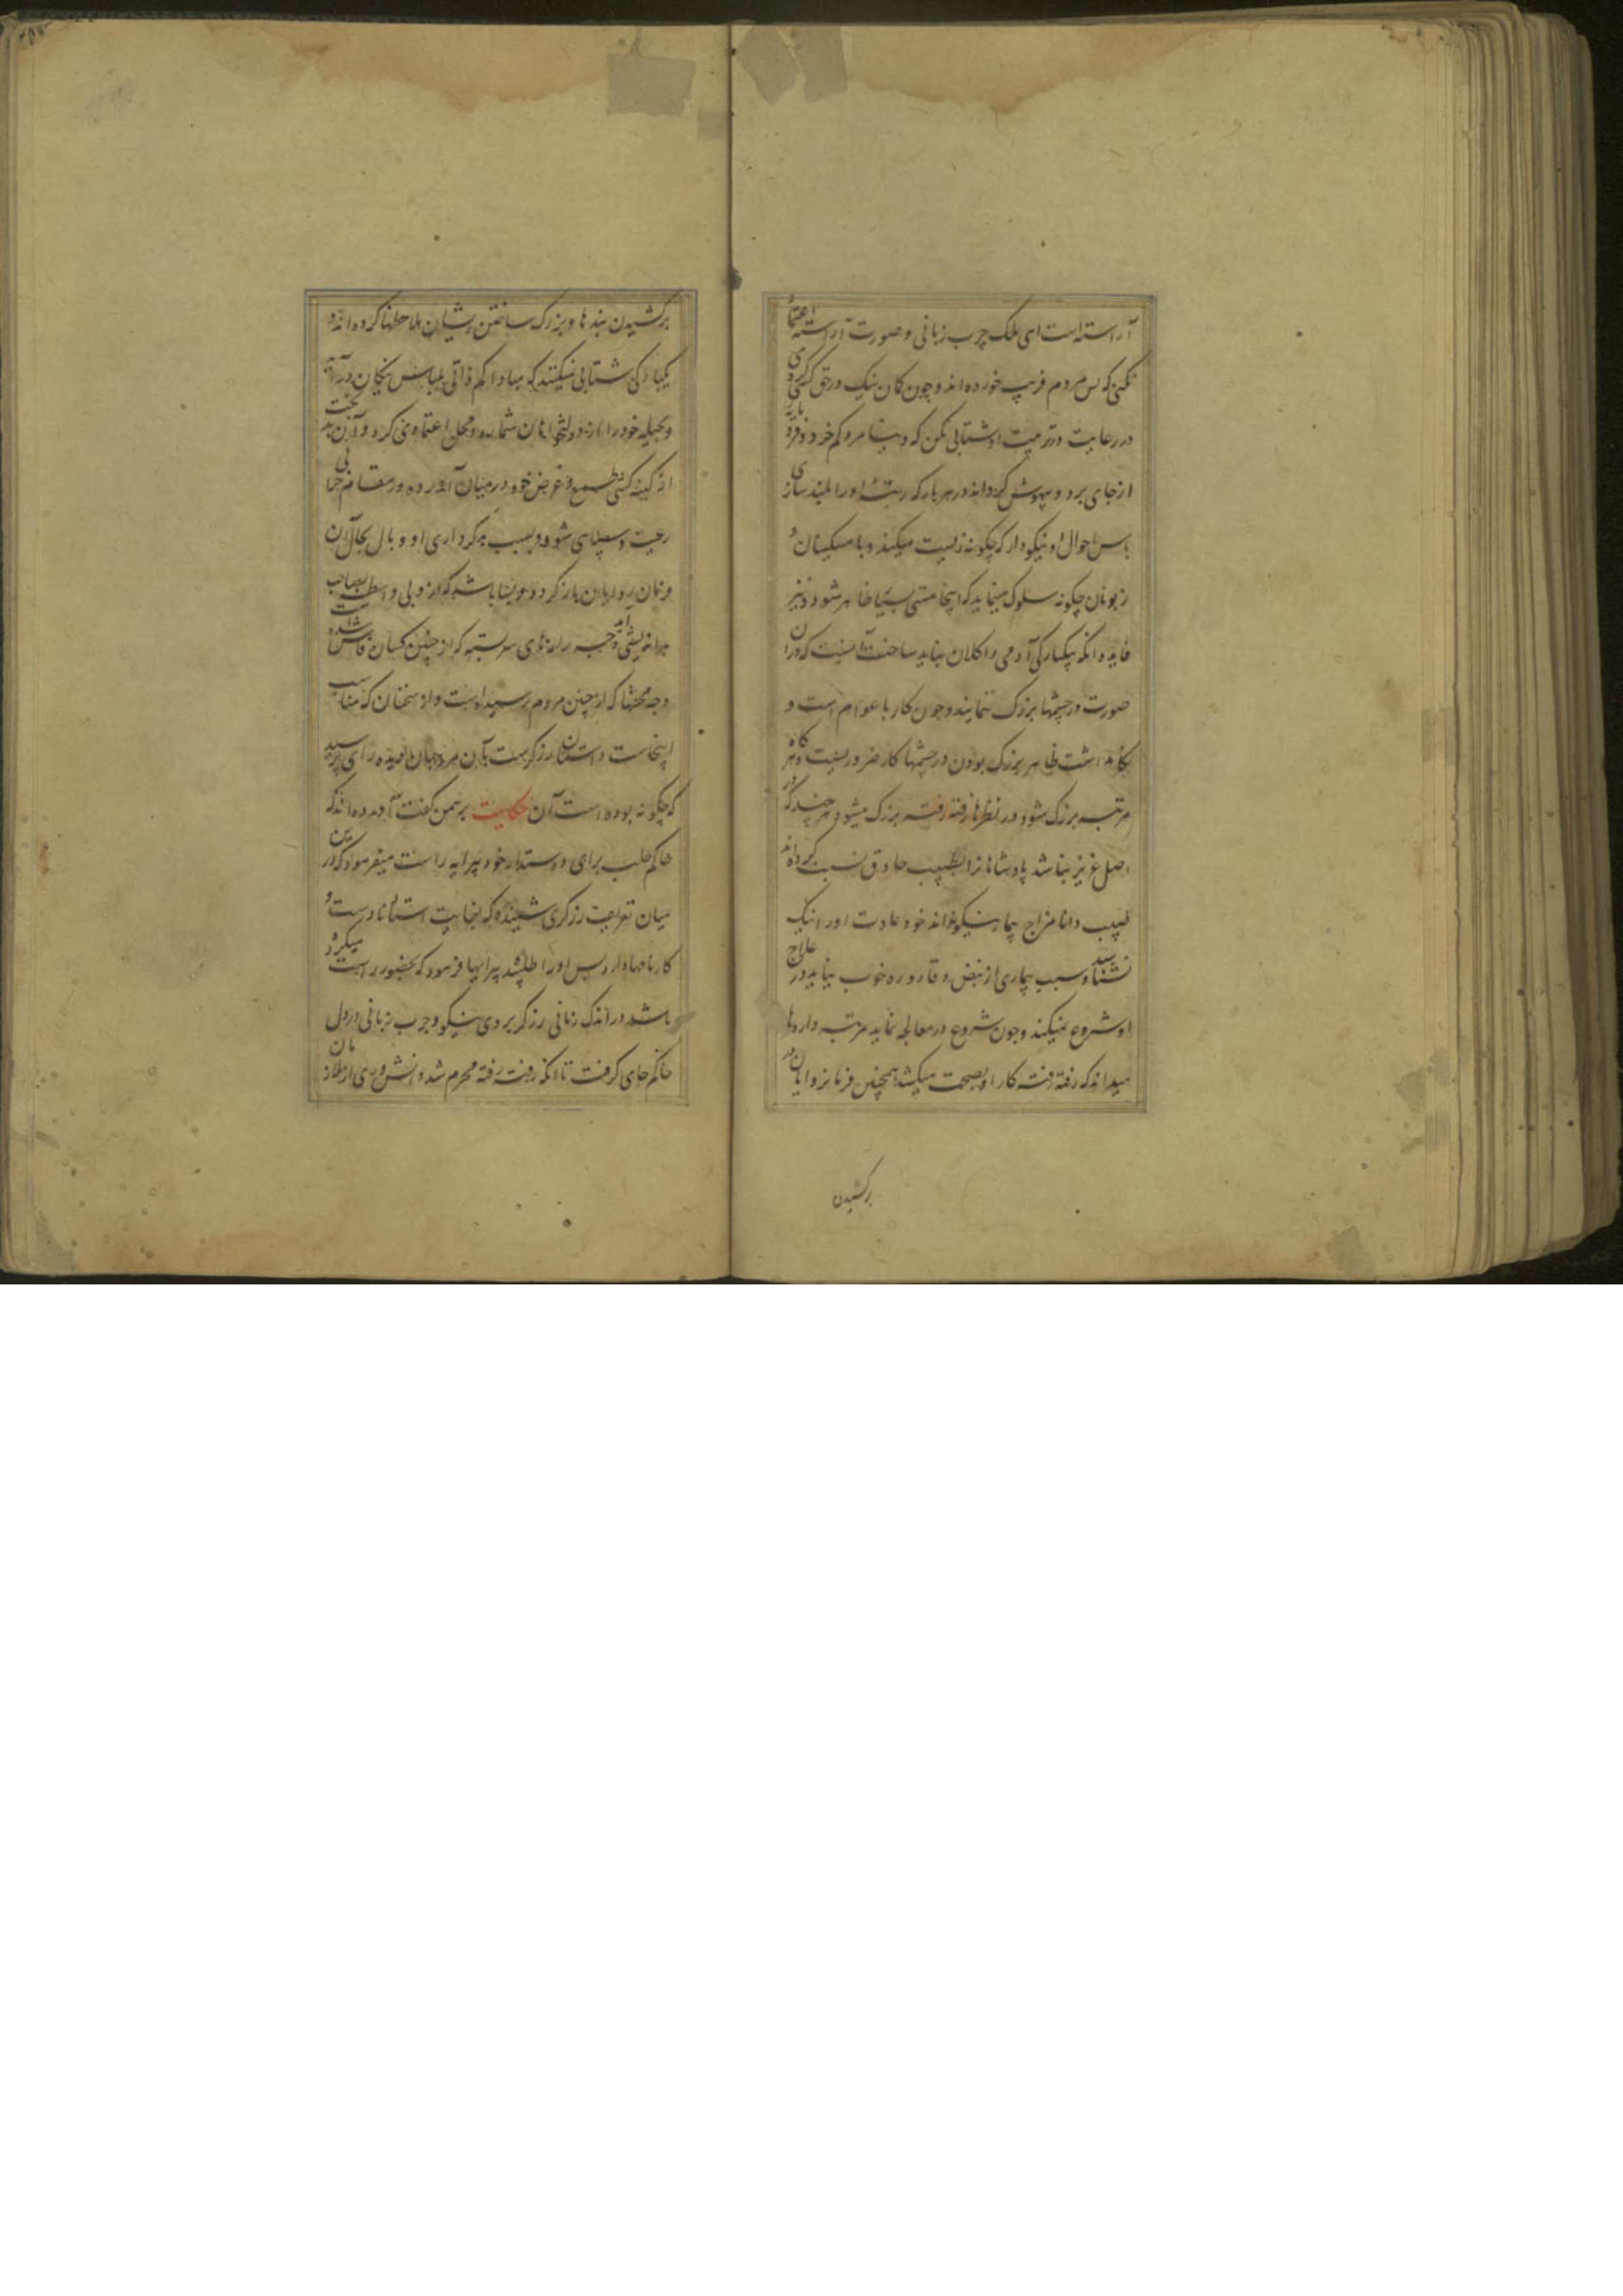 آراسته است ای ملک چرب زبانی و صورت آراسته اعتماد
نکنی که بس مردم فریب خورده اند و چون گمان نیک در حق کسی کردی
در رعایت و تربیت او شتابی مکن که دنیا مردم کم خرد و فرومایه
از جای برد و بیهوش گرداند در هر بار که رتبهٔ او را بلند سازی
پاس احوال او نیکو دار که چگونه زیست میکند و با مسکینان و
زبونان چگونه سلوک مینماید که اینجا مستی بسیار ظاهر شود و نیز
فایده آنکه بیکبارگی آدمی را کلان نباید ساخت آنست که درآن
صورت در چشمها بزرگ ننمایند و چون کار با عوام است و
نگاهداشت ظاهر بزرگ بودن در چشمها کار ضروریست و هرگاه
مرتبه بزرگ شود در نظرها رفته رفته بزرگ میشود هر چند که در
اصل عزیز نباشد پادشاهانرا بطبیب حاذق نسبت کرده اند
طبیب دانا مزاج بیمار نیکو نداند خود عادت او را نیک
نشناسد و سبب بیماری از نبض و قاروره خوب نیابد در علاج
او شروع نمیکند و چون شروع در معالجه نماید مرتبه داروها
میداند که رفته رفته کار او بصحت میکشد همچنین فرمانروایان در
برکشیدن
برکشیدن بندها و بزرگ ساختن ایشان ملاحظها کرده اند و
یکبارگی شتابی نمیکنند که مبادا کم ذاتی بلباس نیکان در آید
و بحیله خود را از دولتخواهان شمارد و محل اعتماد می گردد و آن بدبخت
از کینه کشی و طمع و غرض خود در میان آورده در مقام خرابی
رعیت و سپاهی شود و بسبب بدکرداری او وبال بحال آن
فرمان روایان باز گردد و بینا باشد که از وی واسطه بصاحب
بداندیشی چه رازهای سربسته که از چنین کسان فاش شده است
و چه محنتها که از چنین مردم رسیده است و از سخنان که مناسب
اینجاست داستان زرگرست بآن مرد جهان دیده رای پرسید
که چگونه بوده است آن حکایت برهمن گفت آورده اند که
حاکم حلب برای دوستدار خود پیرایه راست میفرمود که درین
میان تعریف زرگری شنیده که بغایت استاد نادرست و
کارنامها دارد پس او را طلبیده پیرایها فرمود که بحضور راست میکرده
باشد در اندک زمانی زرگر بردی نیکو و چرب زبانی در دل
حاکم جای گرفت تا آنکه رفته رفته محرم شد و دانشوری از ملازمان